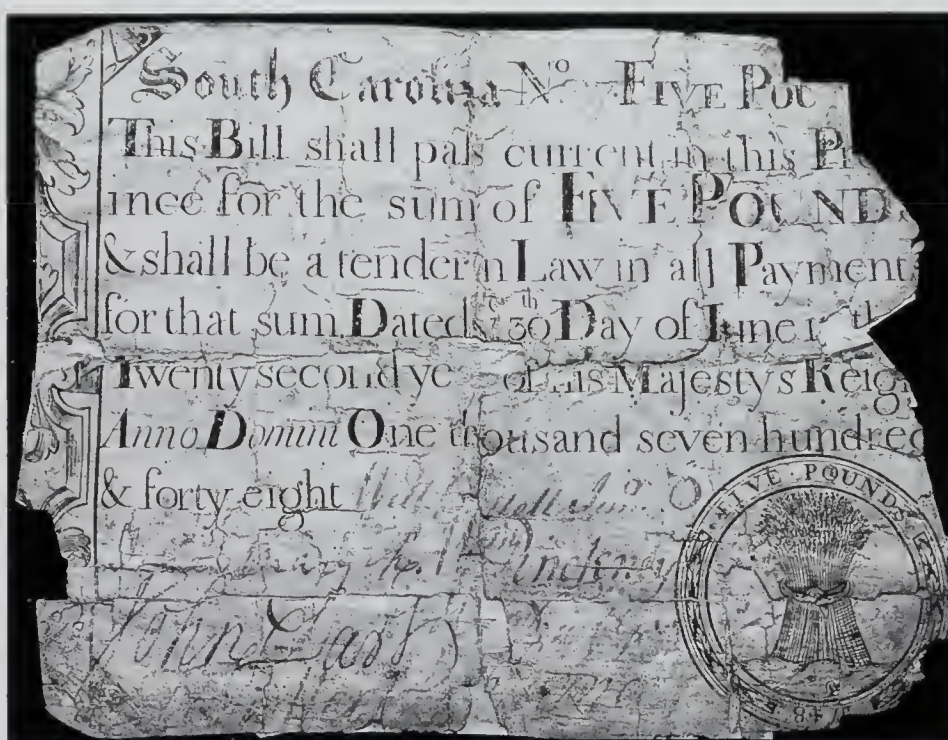 South Carolina No. FIVE POU
This Bill shall pass current in this P
ince for the sum of FIVE POUND
& shall be a tender in Law in all Payment
for that sum Dated ye 30th Day of June in th
Twenty second ye of his Majestys Reig
Anno Domini One thousand seven hundred
& forty eight
Pinckney
John
FIVE POUNDS